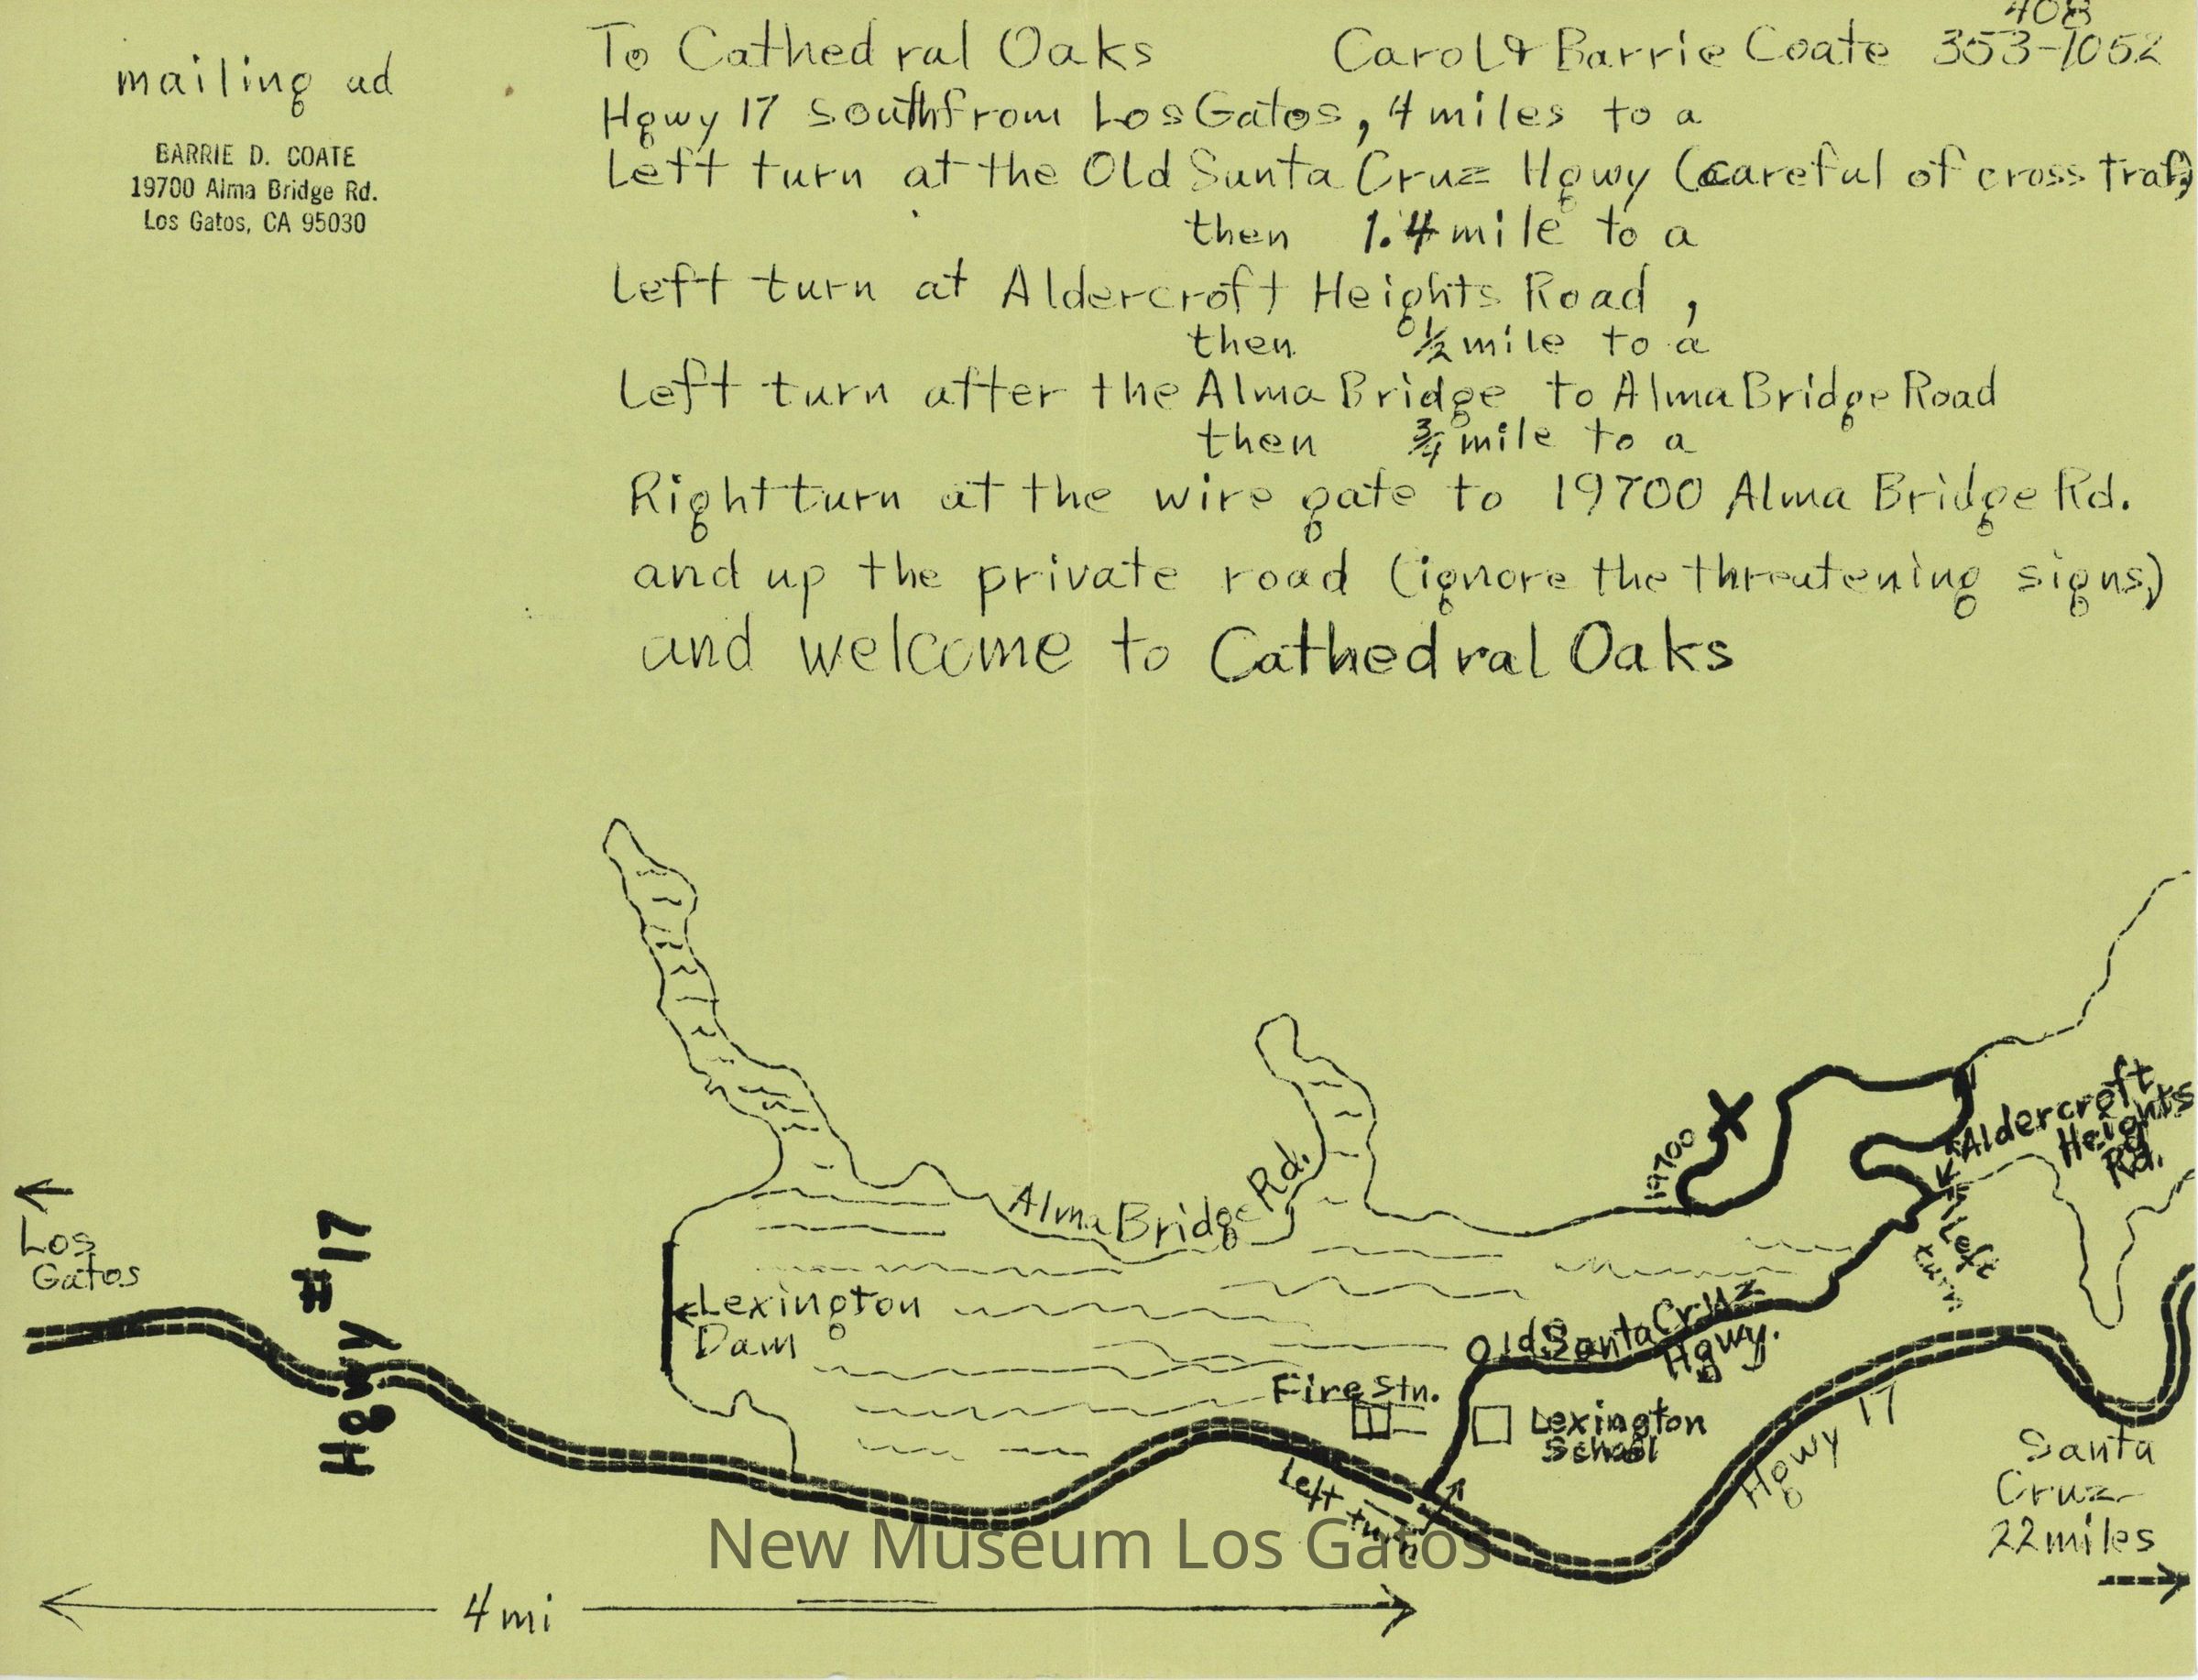 mailing ad
BARRIE D. COATE
19700 Alma Bridge Rd.
Los Gatos, CA 95030
To Cathedral Oaks Carol & Barrie Coate 408 353-1052
Hgwy 17 south from Los Gatos, 4 miles to a
Left turn at the Old Santa Cruz Hgwy (careful of cross traf.)
then 1.4 mile to a
Left turn at Aldercroft Heights Road,
then ½ mile to a
Left turn after the Alma Bridge to Alma Bridge Road
then ¾ mile to a
Right turn at the wire gate to 19700 Alma Bridge Rd.
and up the private road (ignore the threatening signs)
and welcome to Cathedral Oaks
19700
X
Aldercroft
Heights
Rd.
Alma Bridge Rd.
Los
Gatos
Hgwy #17
Left
turn
Lexington
Dam
Old Santa Cruz
Hgwy.
Fire Stn.
Lexington
School
Left turn
Hgwy 17
Santa
Cruz
22 miles
New Museum Los Gatos
4 mi